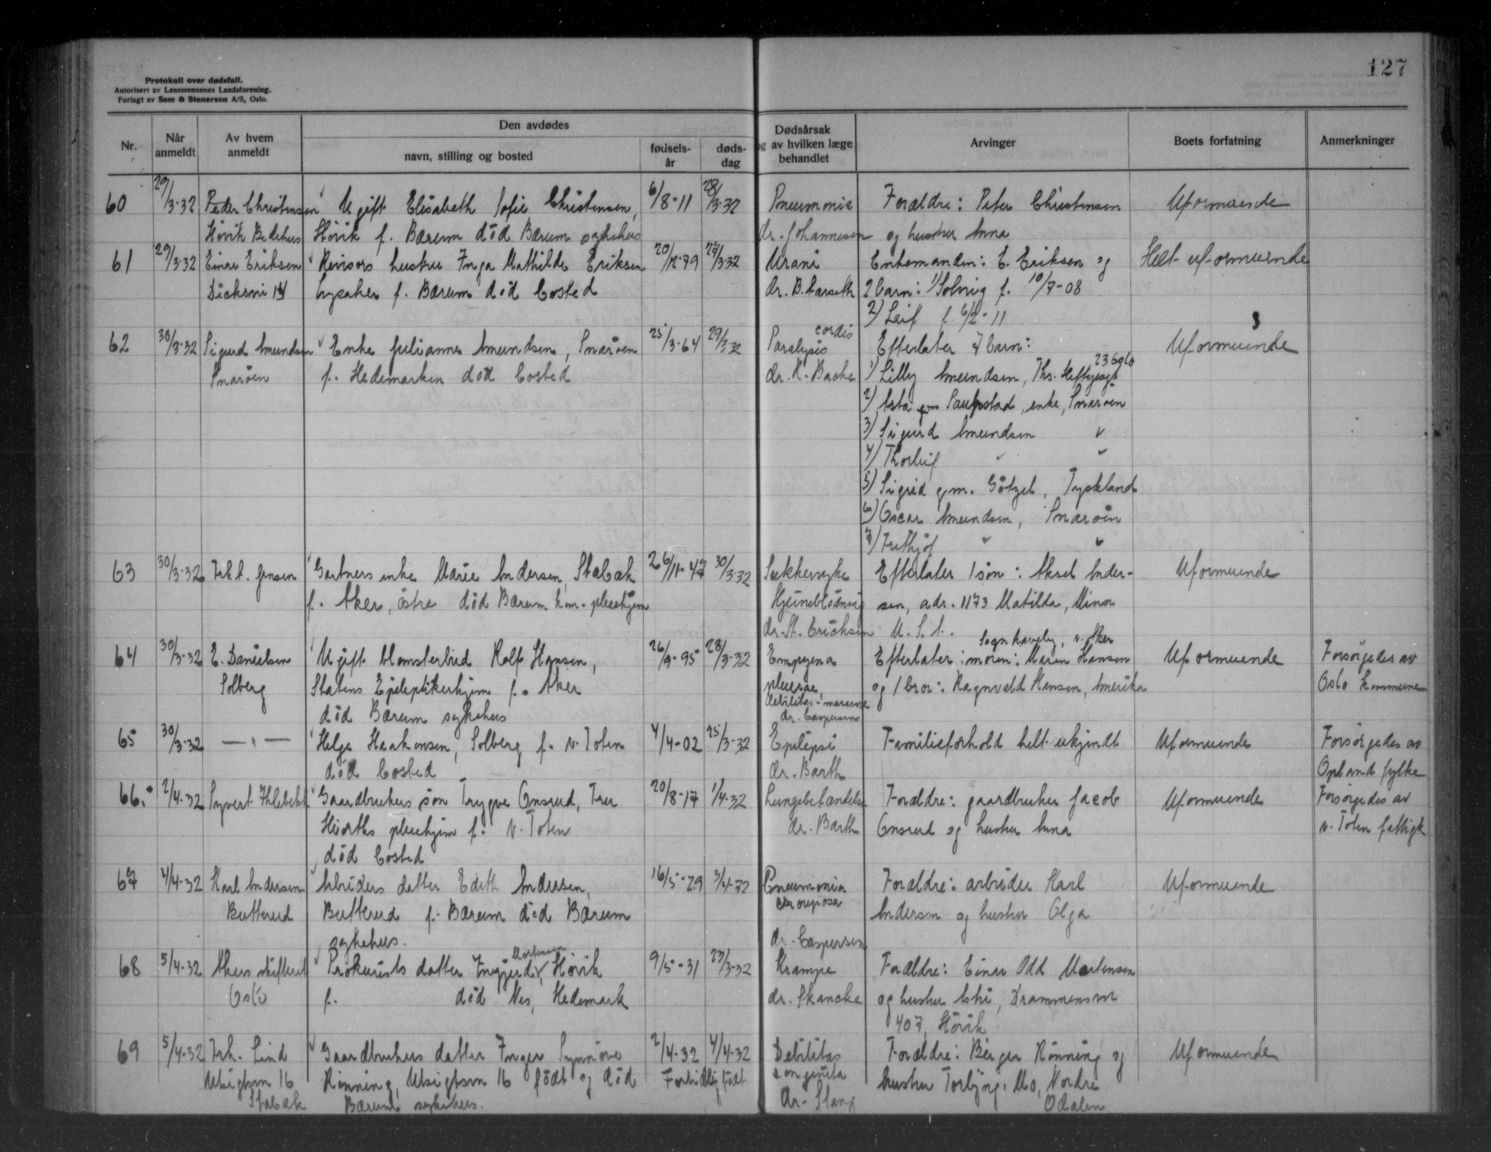 127
Protokoll over dødsfall.
Autorisert av Lensmennenes Landsforening.
Forlagt av Sem & Stenersen A/S, Oslo.
Nr. Når anmeldt Av hvem anmeldt Den avdødes navn, stilling og bosted fødsels-år døds-dag Dødsårsak og av hvilken læge behandlet Arvinger Boets forfatning Anmerkninger
60 29/3-32 Peder Christensen Ugift Elisabeth Sofie Christensen, 6/8-11 28/3-32 Pneumonia Forældre: Peter Christensen Uformuende
Høvik Bedehus Høvik f. Bærum död Bærum sykehus dr. Johannesen og hustru Anna
61 29/3-32 Einar Eriksen Revisors hustru Inga Mathilde Eriksen 20/12-79 27/3-32 Uræmi Enkemanden: E. Eriksen og Helt uformuende
Lysaker f. Bærum död Bosted dr. B. Aarseth 2 barn: 1) Solveig f. 10/7-08
2) Leif f. 6/2-11
62 30/3-32 Sigurd Amundsen Enke Julianne Amundsen, Snarøen 25/3-64 29/3-32 Paralysis cordis Efterlater 7 barn: Uformuende
Snarøen f. Hedemarken död Bosted dr. K. Bache 1) Lilly Amundsen, Ths. Heftyesgt 23 Oslo
2) Asta Saupstad, enke, Snarøen
3) Sigurd Amundsen "
4) Thorleif " "
5) Sigrid gm. Götzel, Tyskland
6) Oscar Amundsen, Snarøen
7) Frithjof " "
63 30/3-32 Frk. A. Jensen Gartners enke Marie Andersen, Stabæk 26/11-47 30/3-32 Sukkersyke Efterlater 1 søn: Aksel Ander- Uformuende
f. Aker, östre död Bærum km. pleiehjem Hjerneblödning sen, adr. 1173 Matilda, Minor
dr. St. Erichsen U.S.A.
64 30/3-32 E. Danielsen Ugift blomsterbud Rolf Hansen, 26/9-95 28/3-32 Empyema Efterlater: moren: Maren Hansen Sognhaveby, v. Aker Uformuende Forsörgedes av
Solberg Statens Epileptikerhjem f. Aker pleurae, og 1 bror: Ragnvald Hansen, Amerika Oslo kommune
död Bærum sykehus debilitas dr. Caspersen
65 30/3-32 — " — Helge Haakonsen, Solberg f. v. Toten 4/4-02 25/3-32 Epilepsi Familieforhold helt ukjendt Uformuende Forsörgedes av
död Bosted dr. Barth Opland fylke
66. 2/4-32 Syvert Gaardbrukers sön Trygve Onsrud, 20/8-17 1/4-32 Forældre: gaardbruker Jacob Uformuende Forsörgedes av
Hiorths pleiehjem f. V. Toten dr. Barth Onsrud og hustru Anna v. Toten fattigk
död Bosted
67 4/4-32 Karl Andersen Arbeiders datter Edith Andersen, 16/5-29 3/4-32 Pneumonia Forældre: arbeider Karl Uformuende
Butterud Butterud f. Bærum död Bærum crouposa Andersen og hustru Olga
sykehus. dr. Caspersen
68 5/4-32 Akers skifteret Prokurists datter Ingjerd Mortensen, Høvik 9/5-31 23/3-32 Krampe Forældre: Einar Odd Mortensen
Oslo f. död Nes, Hedemark dr. Skancke og hustru Astri, Drammensvn
407, Høvik
69 5/4-32 Frk. Lind Gaardbrukers datter Inger Synnöve 2/4-32 4/4-32 Debilitas Forældre: Birger Rønning og Uformuende
Utsigtsvn 16 Rönning, Utsigtsvn 16 födt og död Fortidlig födt congenita hustru Torbjörg. Mo, Nordre
Stabæk Bærum sykehus. dr. Stang Odalen